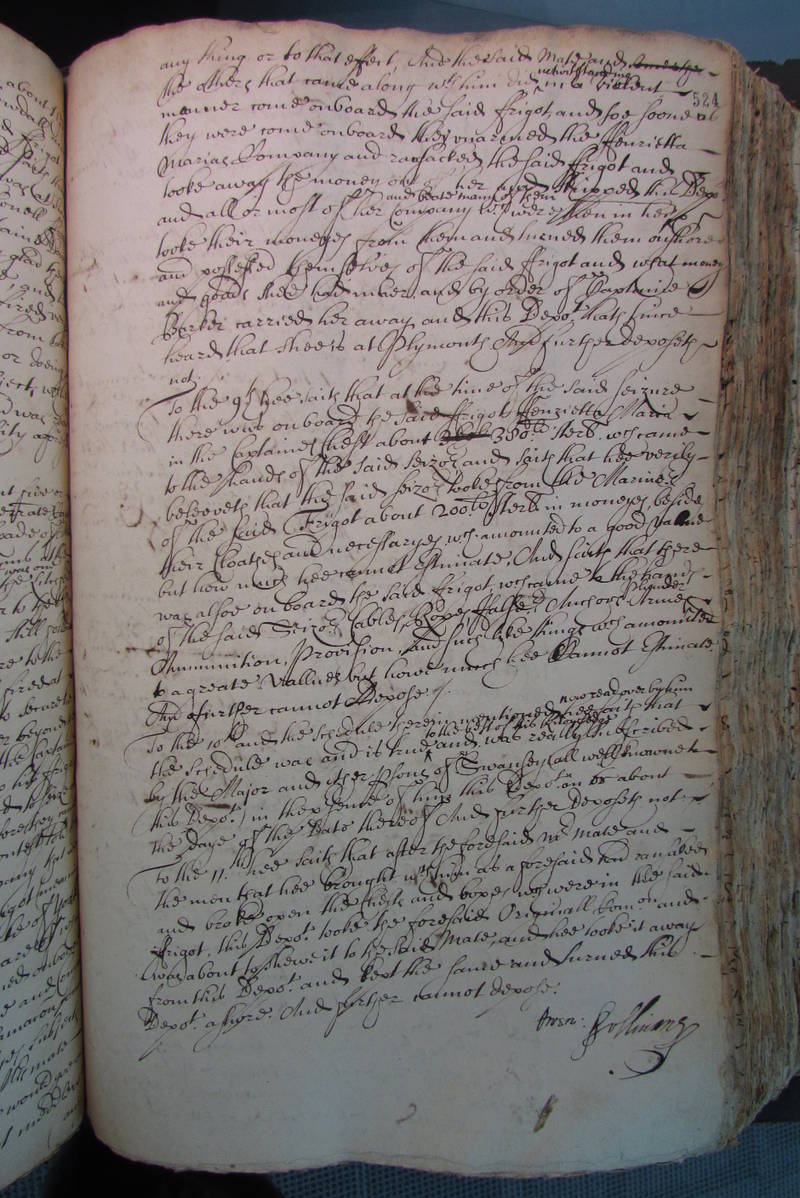 any thing or to that effect, And the said Mate and
the others that came along wth him did notwithstanding in a violent
524
manner come onboard the said ffrigot, and soe soone as
they were come onboard they unarmed the Henrietta
Marias Company and ransacked the said ffrigot and
tooke away the money out of her and stripped this Depot
and all or most of her Company wch were then in her and beate many of them
tooke their moneyes from them and turned them onshore
and possessed themselves of the said ffrigot and what money
and goods shee had in her, and by order of Captaine
Barker carried her away, and this Depot hath since
heard that shee is at Plymouth And further deposeth
not.
To the 9th hee saith that at the time of the said seizure
there was onboard the said ffrigot Henrietta Maria
in the Captaines Chest about 380li sterl. wch came
to the hands of the said Seizors and saith that hee verily
beleeveth that the said seizors tooke from the Mariners
of the said Frigot about 200li sterl in moneyes, beside
their Cloathes and necessaryes, wch amounted to a good value
but how much hee cannot estimate, And saith that there
was alsoe on board the said ffrigot, wch came to the hands
of the said Seizors Cables, Ropes, Anchors, Armes Plunder
Ammunition, Provision, and such like things wch amounted
to a greate vallue, but howe much hee Cannot Estimate
And further cannot Depose.
To the 10th and the schedule therein mentioned now read over by him hee saith that
the schedule was and is true to the best of his knowledge and was really subscribed
by the Major and other persons of Swansey (all well knowne to
this Depot) in the presence of him this Depot on or about
the Daye of the Date thereof And further Deposeth not
To the 11th hee saith that after the foresaid Mate and
the men that hee brought with him as aforesaid had ransacked
and broke open the chests and boxes wch were in the said
ffrigot, this Depot tooke the foresaid Originall Comon and
was about to shewe it to the said Mate, and hee tooke it away
from this Depot and kept the same and turned this
Depot ashore. And further cannot depose.
Owen: